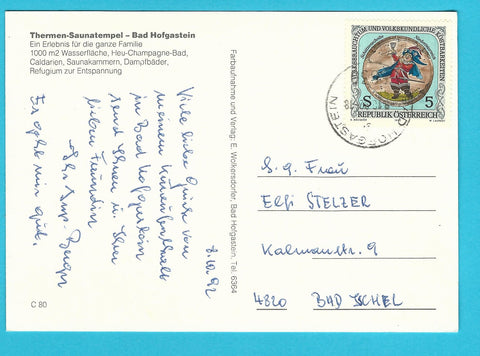 Thermen-Saunatempel – Bad Hofgastein
Ein Erlebnis für die ganze Familie
1000 m2 Wasserfläche, Heu-Champagne-Bad,
Caldarien, Saunakammern, Dampfbäder,
Refugium zur Entspannung
8.10.92
Viele liebe Grüße von
meinem Kuraufenthalt
in Bad Hofgastein
send Ihnen u. Ihrer
lieben Freundin
Ihr
Es geht mir gut.
C 80
Farbaufnahme und Verlag: E. Wolkersdorfer, Bad Hofgastein, Tel. 6364
VOLKSKUNDLICHE KOSTBARKEITEN
S 5
REPUBLIK ÖSTERREICH
HOFGASTEIN
S.g. Frau
Elfi STELZER
Kalmanstr. 9
4820 BAD ISCHL